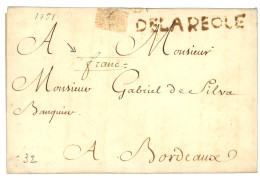 1751
DELAREOLE
A Monsieur
franc
Monsieur Gabriel de Silva
Banquier
32
A Bordeaux